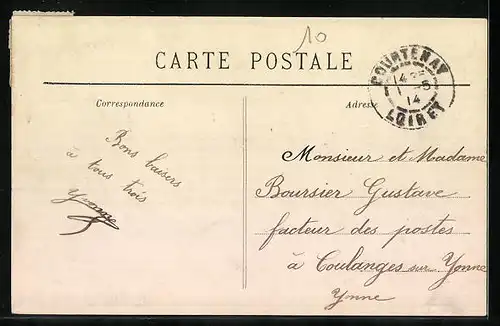 10
CARTE POSTALE
COURTENAY
14
1 -5
14
LOIRET
Correspondance
Adresse
Bons baisers
à tous trois
Yvonne
Monsieur et Madame
Boursier Gustave
facteur des postes
à Coulanges sur Yonne
Yonne